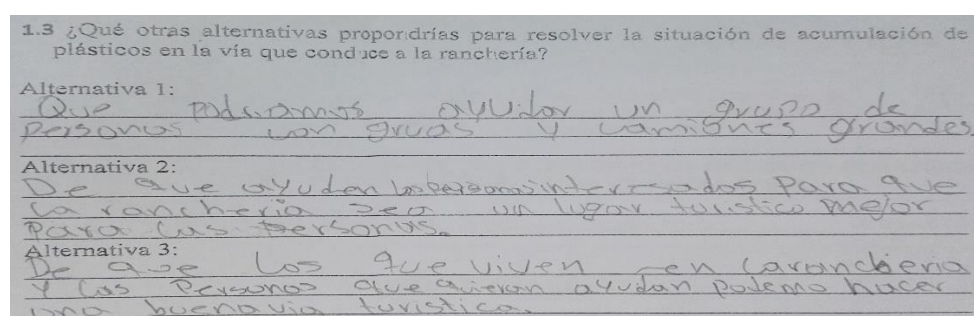 1.3 ¿Qué otras alternativas propondrías para resolver la situación de acumulación de
plásticos en la vía que conduce a la ranchería?
Alternativa 1:
Que podriamos ayudar un grupo de
personas con gruas y camiones grandes
Alternativa 2:
De que ayuden las personas interesados para que
la rancheria sea un lugar turistico mejor
para las personas.
Alternativa 3:
De que los que viven en la rancheria
y las personas que quieran ayudan podemo hacer
una buena via turistica.